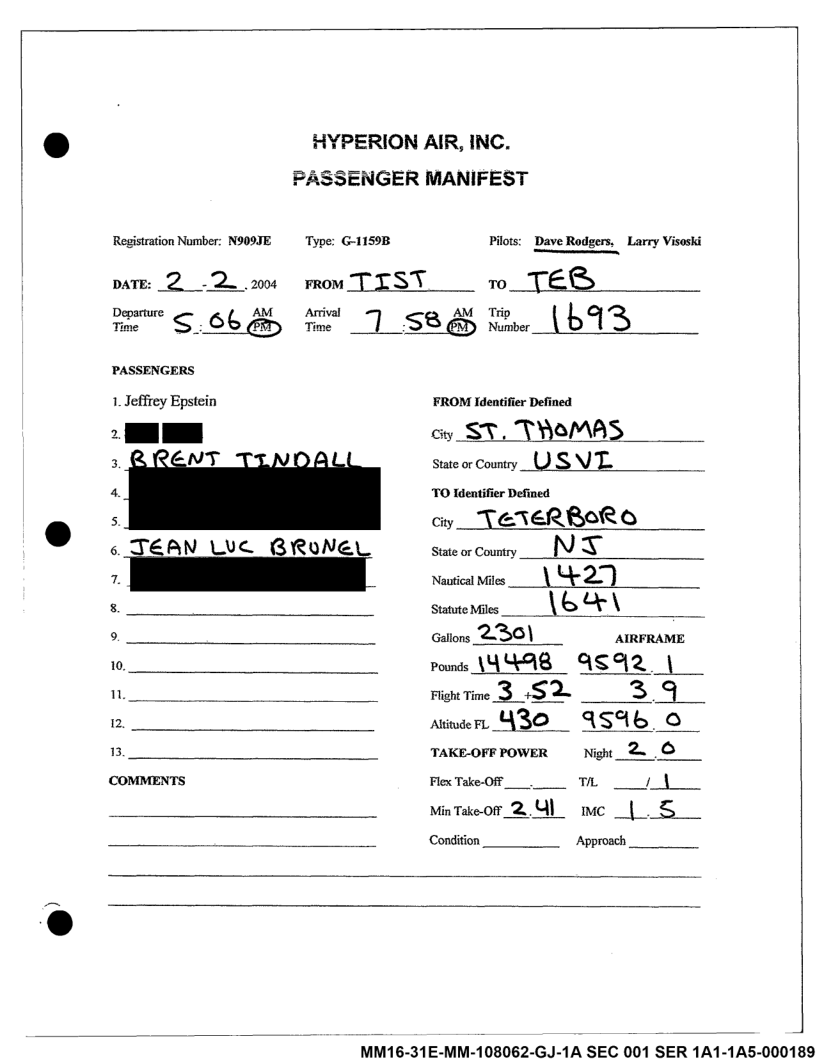 HYPERION AIR, INC.
PASSENGER MANIFEST
Registration Number: N909JE Type: G-1159B Pilots: Dave Rodgers, Larry Visoski
DATE: 2 - 2 , 2004 FROM TIST TO TEB
Departure Time 5 : 06 AM PM Arrival Time 7 : 58 AM PM Trip Number 1693
PASSENGERS
1. Jeffrey Epstein
2.
3. BRENT TINDALL
4.
5.
6. JEAN LUC BRUNEL
7.
8.
9.
10.
11.
12.
13.
COMMENTS
FROM Identifier Defined
City ST. THOMAS
State or Country USVI
TO Identifier Defined
City TETERBORO
State or Country NJ
Nautical Miles 1427
Statute Miles 1641
Gallons 2301 AIRFRAME
Pounds 14498 9592 . 1
Flight Time 3 + 52 3 . 9
Altitude FL 430 9596 . 0
TAKE-OFF POWER Night 2 . 0
Flex Take-Off . T/L / 1
Min Take-Off 2 . 41 IMC 1 . 5
Condition Approach
MM16-31E-MM-108062-GJ-1A SEC 001 SER 1A1-1A5-000189